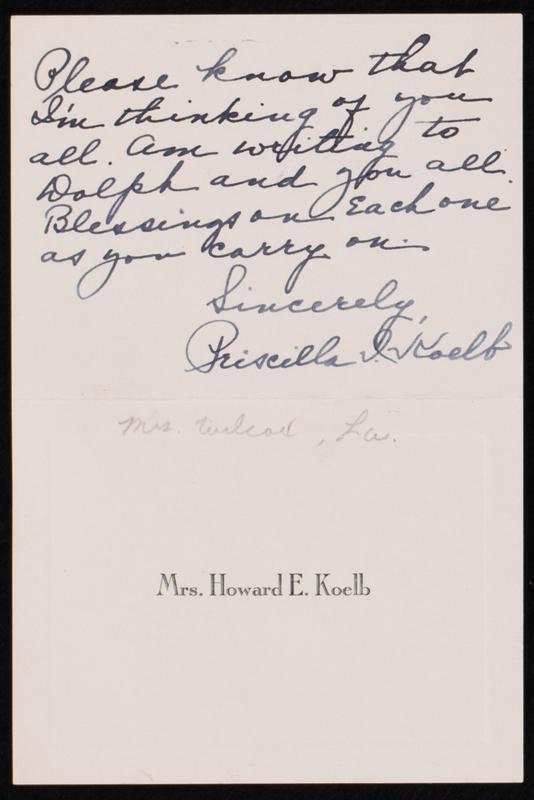 Please know that
I'm thinking of you
all. Am writing to
Dolph and you all.
Blessings on Each one
as you carry on.
Sincerely,
Priscilla I. Koelb
Mrs. Wilcox, La.
Mrs. Howard E. Koelb